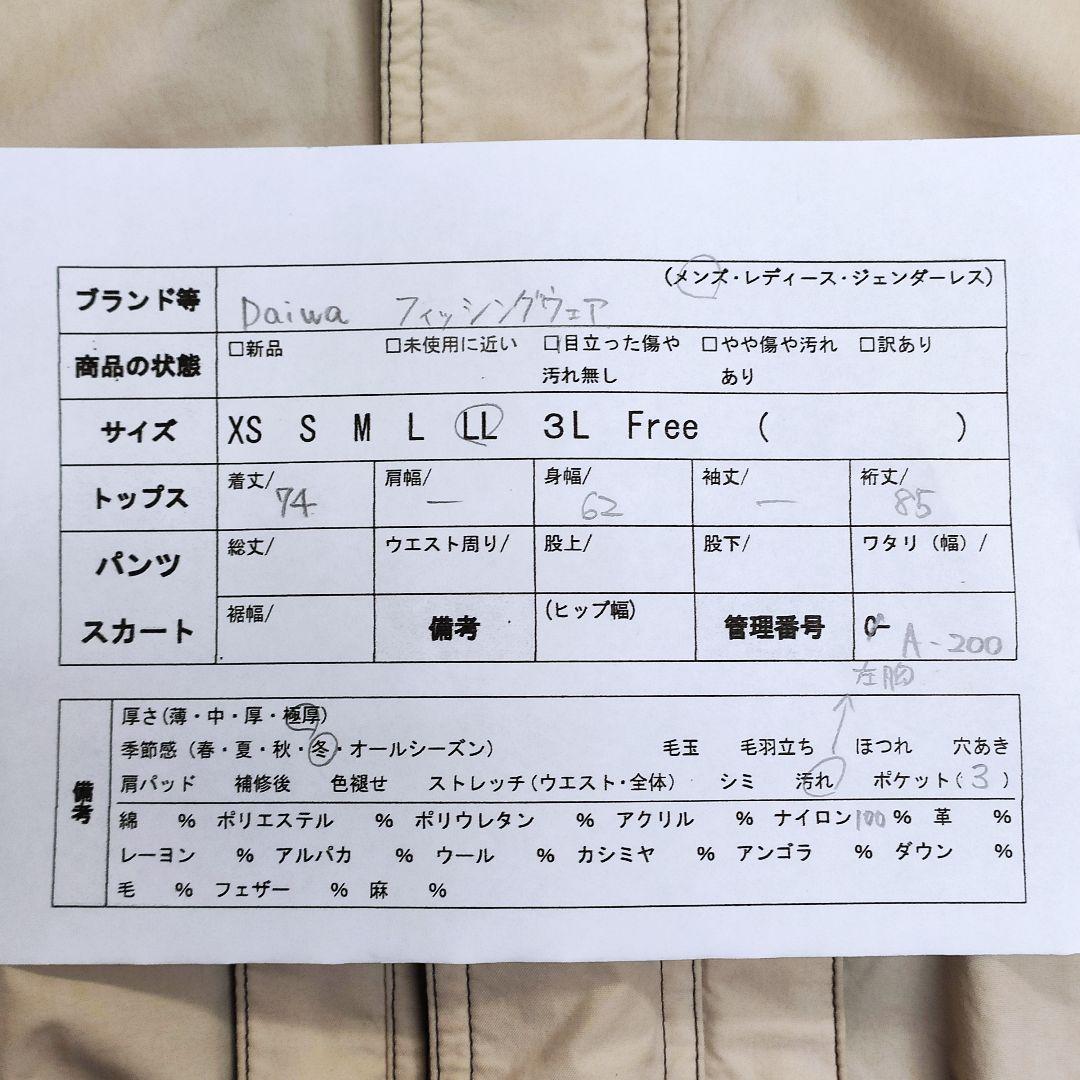 (メンズ・レディース・ジェンダーレス)
ブランド等 Daiwa フィッシングウェア
商品の状態 □新品 □未使用に近い □目立った傷や汚れ無し □やや傷や汚れあり □訳あり
サイズ XS S M L LL 3L Free ( )
トップス 着丈/ 74 肩幅/ — 身幅/ 62 袖丈/ — 裄丈/ 85
パンツ 総丈/ ウエスト周り/ 股上/ 股下/ ワタリ（幅）/
スカート 裾幅/ 備考 (ヒップ幅) 管理番号 A-200
左胸
備考
厚さ(薄・中・厚・極厚)
季節感（春・夏・秋・冬・オールシーズン） 毛玉 毛羽立ち ほつれ 穴あき
肩パッド 補修後 色褪せ ストレッチ(ウエスト・全体) シミ 汚れ ポケット(3)
綿 % ポリエステル % ポリウレタン % アクリル % ナイロン100% 革 %
レーヨン % アルパカ % ウール % カシミヤ % アンゴラ % ダウン %
毛 % フェザー % 麻 %